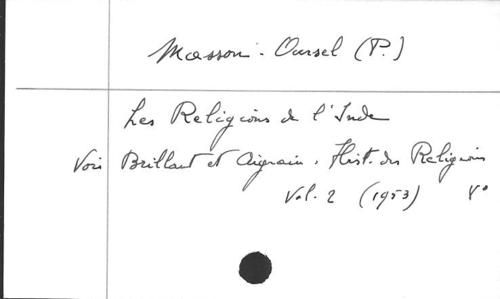 Masson-Oursel (P.)
Les Religions de l'Inde
Voir Brillant et Aigrain. Hist. des Religions
Vol. 2 (1953) 8°